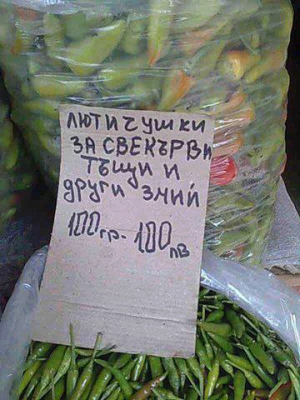 ЛЮТИ ЧУШКИ
ЗА СВЕКЪРВИ
ТЪЩИ И
други змий
100гр- 100лв